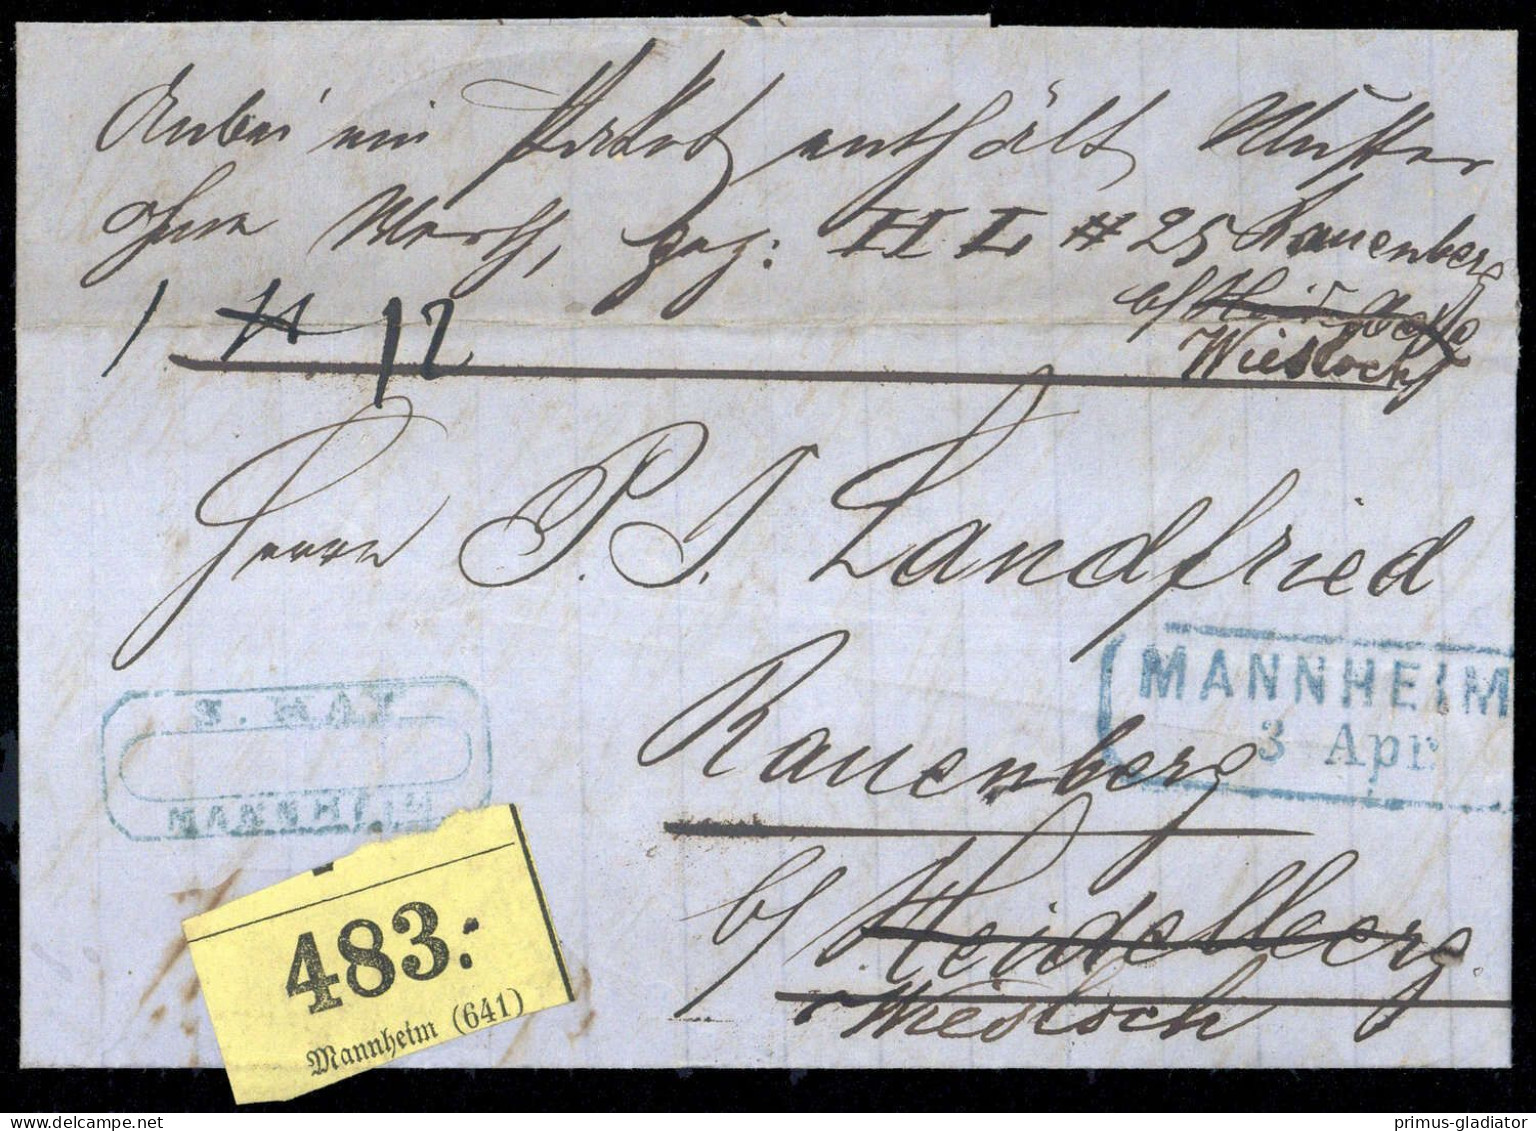 Anbei ein Paket enthält Muster
ohne Werth, gez: H L # 25 Rauenberg
b/ Heidelbg
Wiesloch
1 12
Herrn P. J. Landfried
Rauenberg
b/ Heidelberg.
Wiesloch
MANNHEIM
3 Apr
S. MAY
MANNHEIM
483.
Mannheim (641)
primus-gladiator